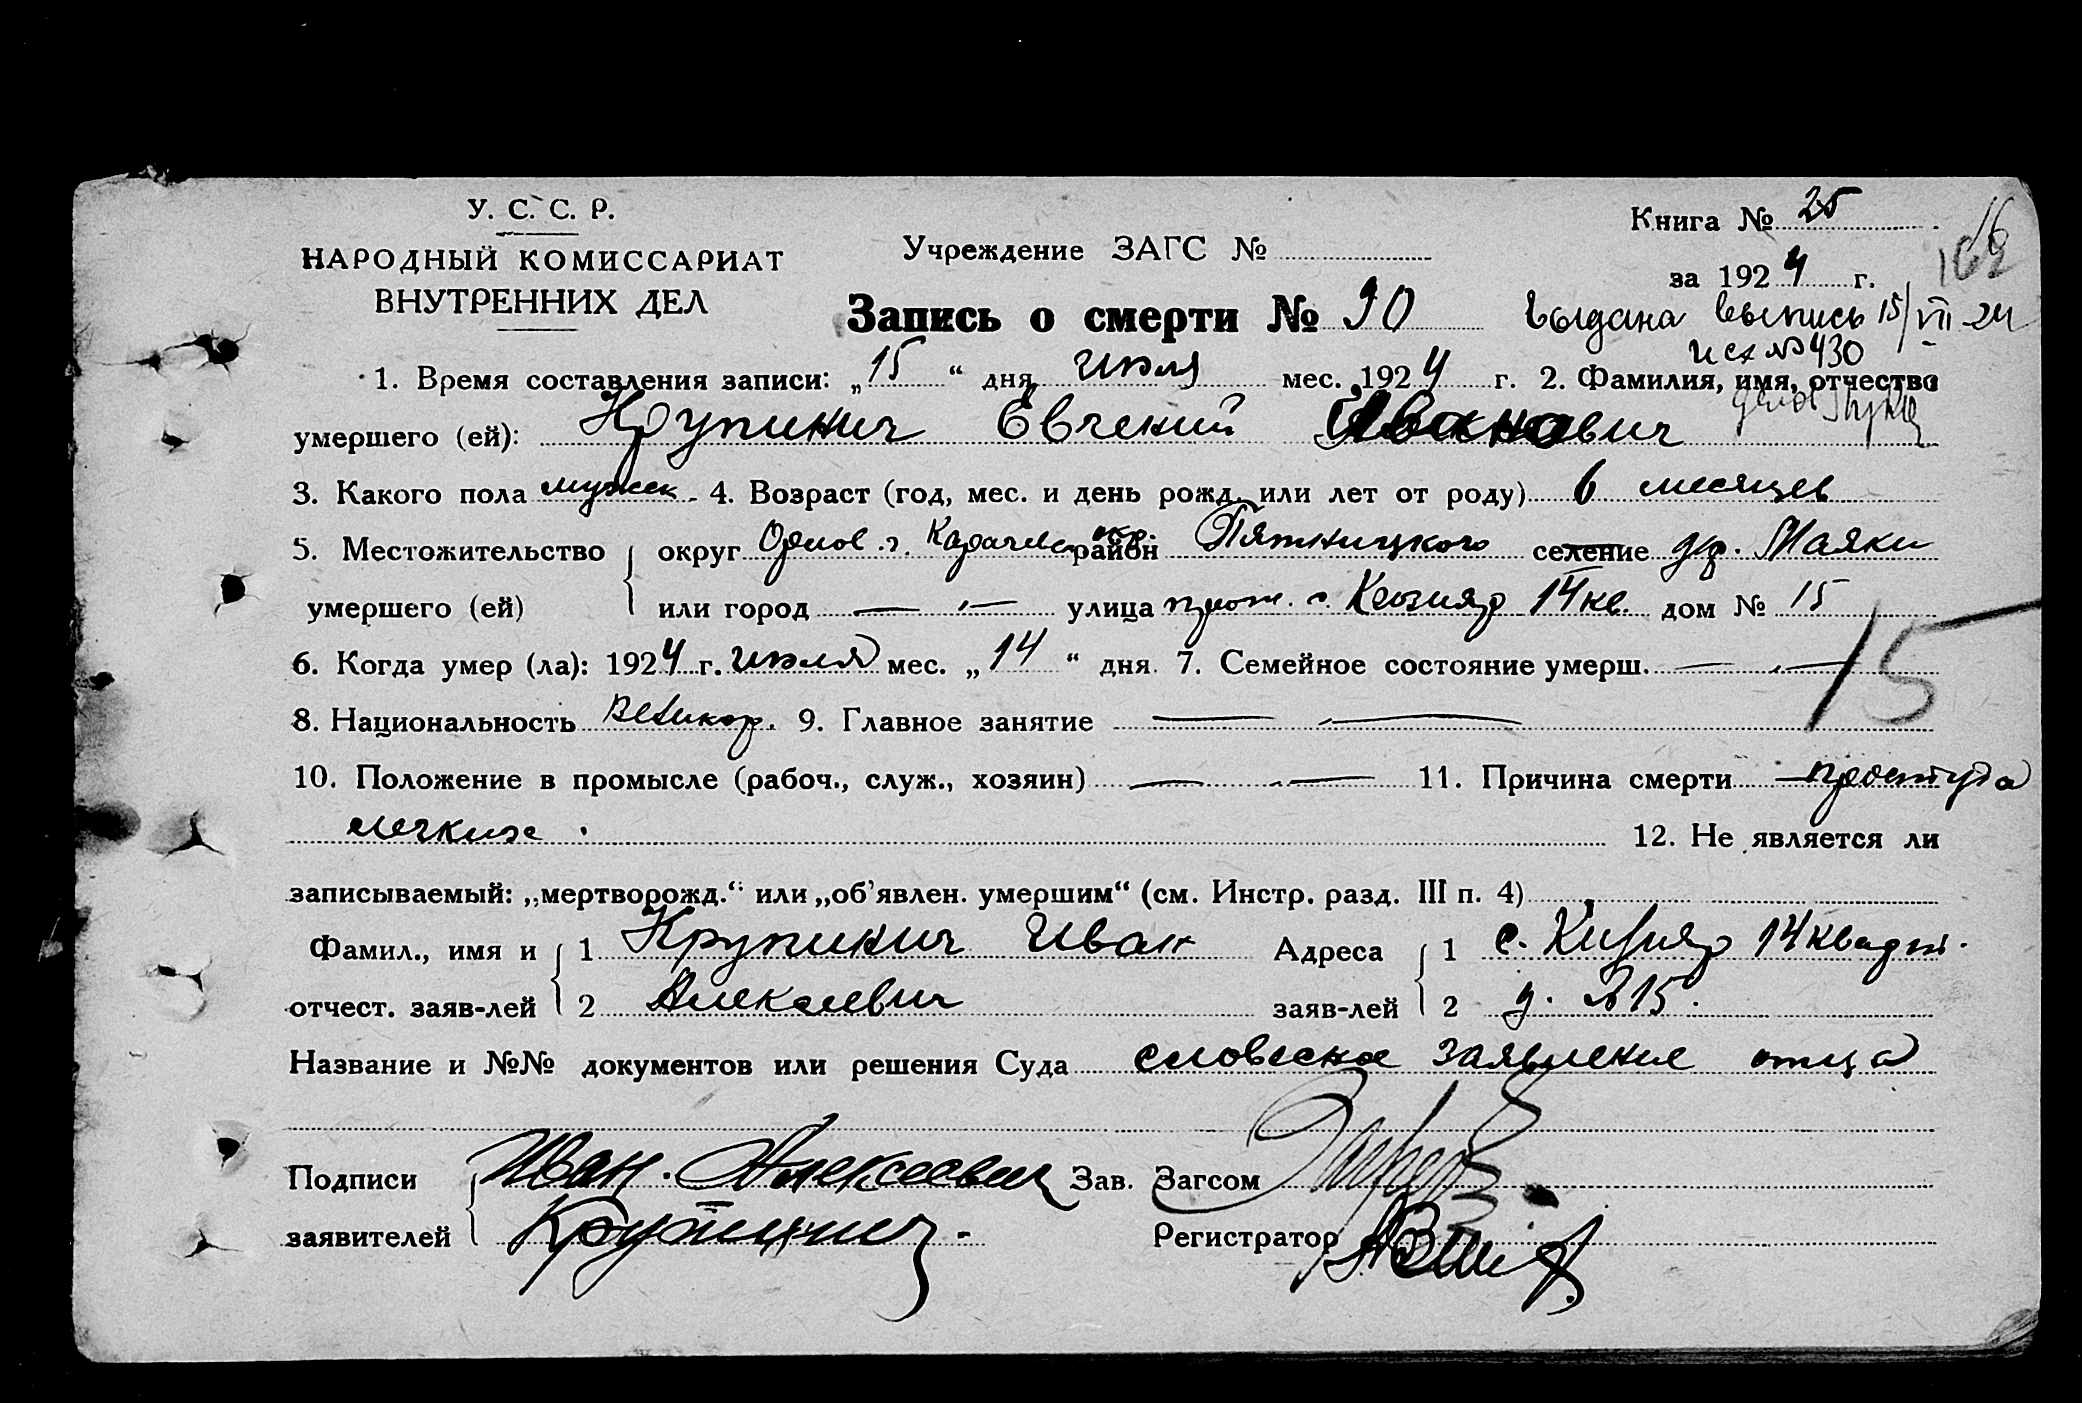 У. С. С. Р.
НАРОДНЫЙ КОМИССАРИАТ
ВНУТРЕННИХ ДЕЛ
Учреждение ЗАГС №
Книга № 25
за 1924 г.
Запись о смерти № 90
Выдана выпись 15/VII-24
Исх №430
1. Время составления записи: „15“ дня июля мес. 1924 г. 2. Фамилия, имя, отчество
умершего (ей): Крупинич Евгений Иванович
3. Какого пола мужск. 4. Возраст (год, мес. и день рожд. или лет от роду) 6 месяцев
5. Местожительство умершего (ей) округ Орлов. г. район Пятницкого селение др. Маяки
или город улица прож. с. 14 кв. дом № 15
6. Когда умер (ла): 1924 г. июля мес. „14“ дня 7. Семейное состояние умерш.
15
8. Национальность Великор. 9. Главное занятие
10. Положение в промысле (рабоч., служ., хозяин) 11. Причина смерти простуда
легких.
12. Не является ли
записываемый: „мертворожд.“ или „об'явлен. умершим“ (см. Инстр. разд. III п. 4)
Фамил., имя и отчест. заяв-лей 1 Крупинич Иван
2 Алексеевич
Адреса заяв-лей 1 с. 14 квадрт.
2 д. №15.
Название и №№ документов или решения Суда словесное заявление отца
Подписи заявителей Иван. Алексеевич
Крупинич
Зав. Загсом
Регистратор